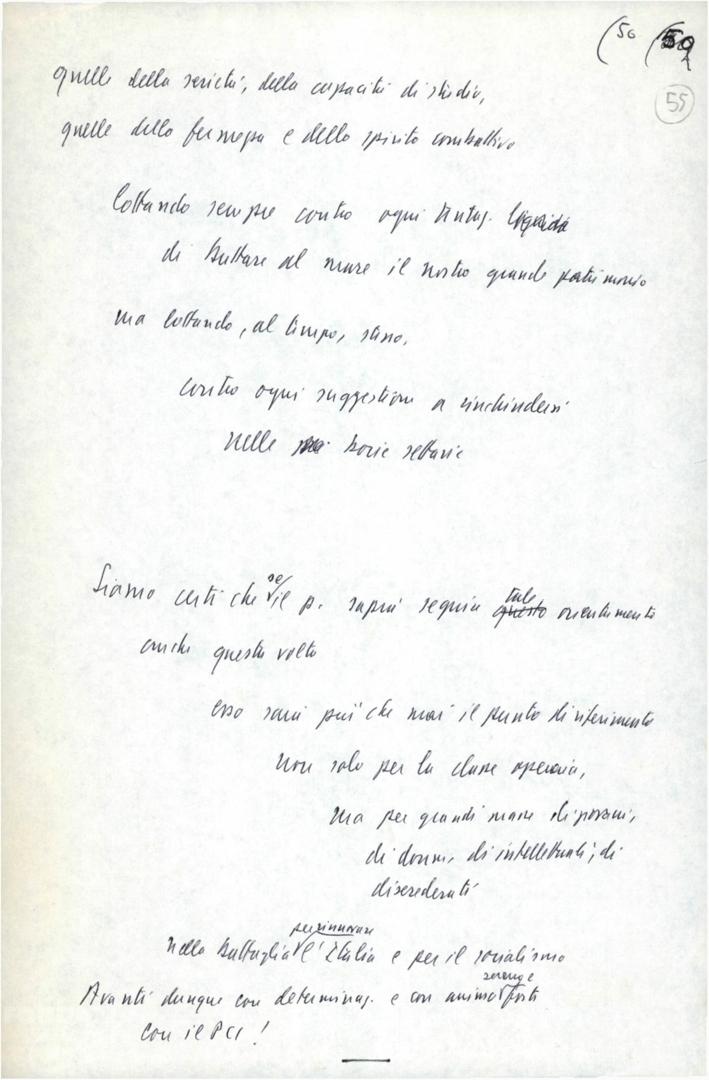 (50 (50
55
quelle della serietà, della capacità di studio,
quelle della fermezza e dello spirito combattivo
lottando sempre contro ogni tentaz.
di buttare al mare il nostro grande patrimonio
ma lottando, al tempo, stesso,
contro ogni suggestione a rinchiudersi
nelle borie settarie
Siamo certi che se il p. saprà seguire questo tale orientamento
anche questa volta
esso sarà più che mai il punto di riferimento
non solo per la classe operaia,
ma per grandi masse di giovani,
di donne, di intellettuali, di
diseredati
nella battaglia per rinnovare l'Italia e per il socialismo
Avanti dunque con determinaz. e con animo sereno e forte
con il PCI!